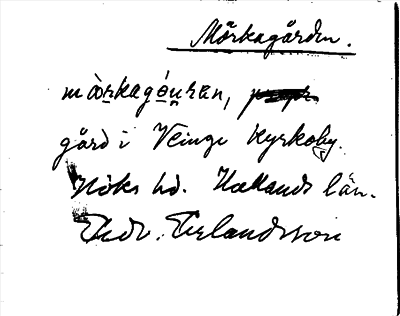 Mörkagården.
mòrkagóu̯ran,
gård i Veinge kyrkoby.
Höks hd. Hallands län.
Thdr. Erlandsson